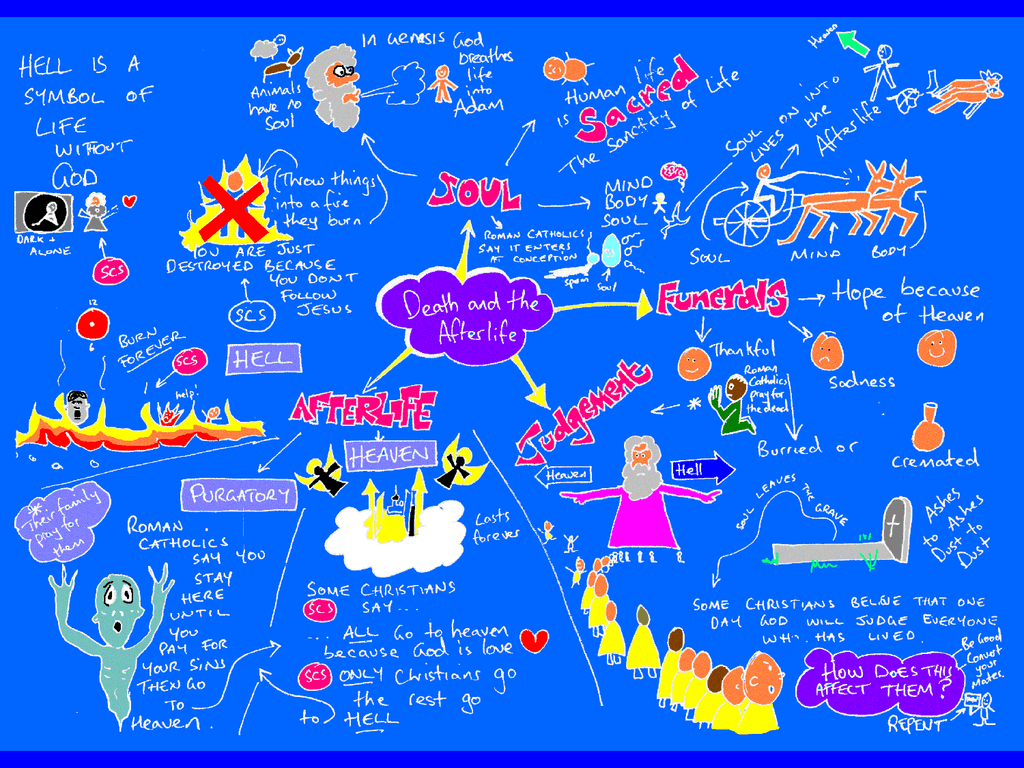 HELL IS A
SYMBOL OF
LIFE
WITHOUT
GOD
DARK +
ALONE
SCS
Animals
have no
Soul
In Genesis God
breathes
life
into
Adam
Human life
is Sacred
The Sanctity of Life
Heaven
SOUL
LIVES ON INTO
the
Afterlife
(Throw things)
into a fire
they burn
YOU ARE JUST
DESTROYED BECAUSE
YOU DON'T
FOLLOW
JESUS
SCS
SOUL
MIND
BODY
SOUL
ROMAN CATHOLICS
SAY IT ENTERS
AT CONCEPTION
sperm
Soul
SOUL
MIND
BODY
Death and the
Afterlife
FUNERALS
Hope because
of Heaven
Thankful
Sadness
Roman
Catholics
pray for
the dead
*
Burried or
Cremated
12
6
BURN
FOREVER
SCS
HELL
help!
AFTERLIFE
HEAVEN
Lasts
forever
Judgement
Heaven
Hell
SOUL LEAVES THE GRAVE
Ashes
to Ashes
Dust to
Dust
PURGATORY
*
Their family
pray for
them
ROMAN
CATHOLICS
SAY YOU
STAY
HERE
UNTIL
YOU
PAY FOR
YOUR SINS
THEN GO
TO
Heaven.
SOME CHRISTIANS
SCS SAY...
... ALL Go to heaven
because God is love
SCS ONLY Christians go
the rest go
to HELL
SOME CHRISTIANS BELIEVE THAT ONE
DAY GOD WILL JUDGE EVERYONE
WHO HAS LIVED.
HOW DOES THIS
AFFECT THEM?
Be Good
Convert
your
Mates.
REPENT